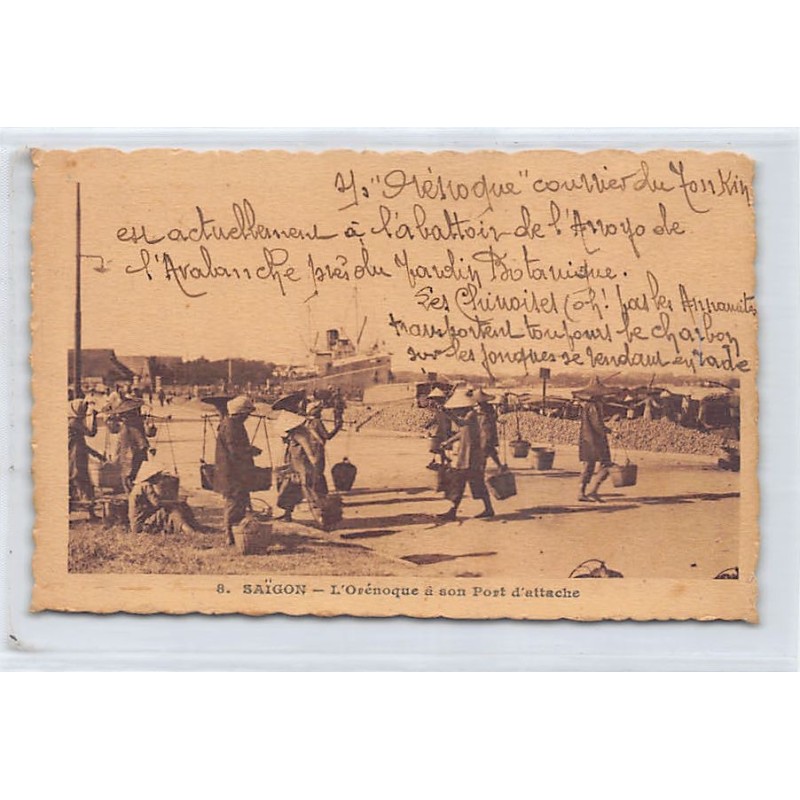 "Orénoque" courrier du Tonkin
est actuellement à l'abattoir de l'Arroyo de
l'Avalanche près du Jardin Botanique.
Les Chinoises (oh! pas les Annamites
transportent toujours le charbon
sur les jonques se rendant en rade
8. SAÏGON — L'Orénoque à son Port d'attache